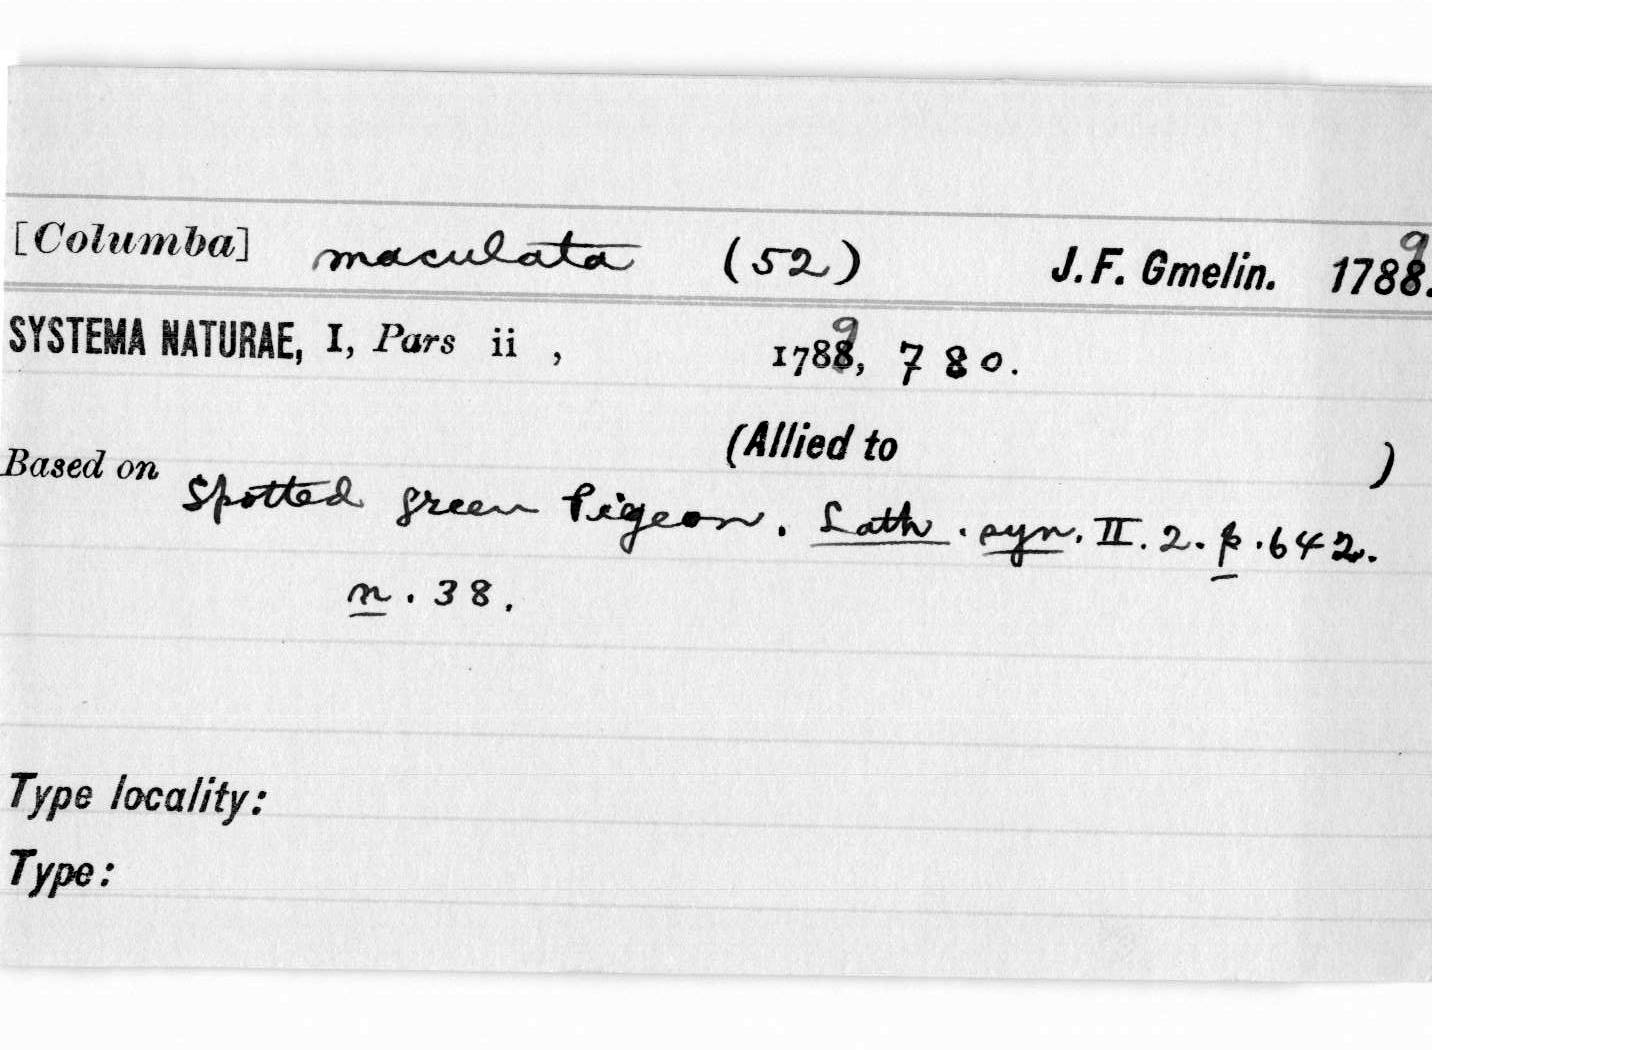 [Columba] maculata (52) J. F. Gmelin. 1789.
SYSTEMA NATURAE, I, Pars ii , 1789, 780.
(Allied to )
Based on Spotted green Pigeon. Lath. syn. II. 2. p. 642.
n. 38.
Type locality:
Type: